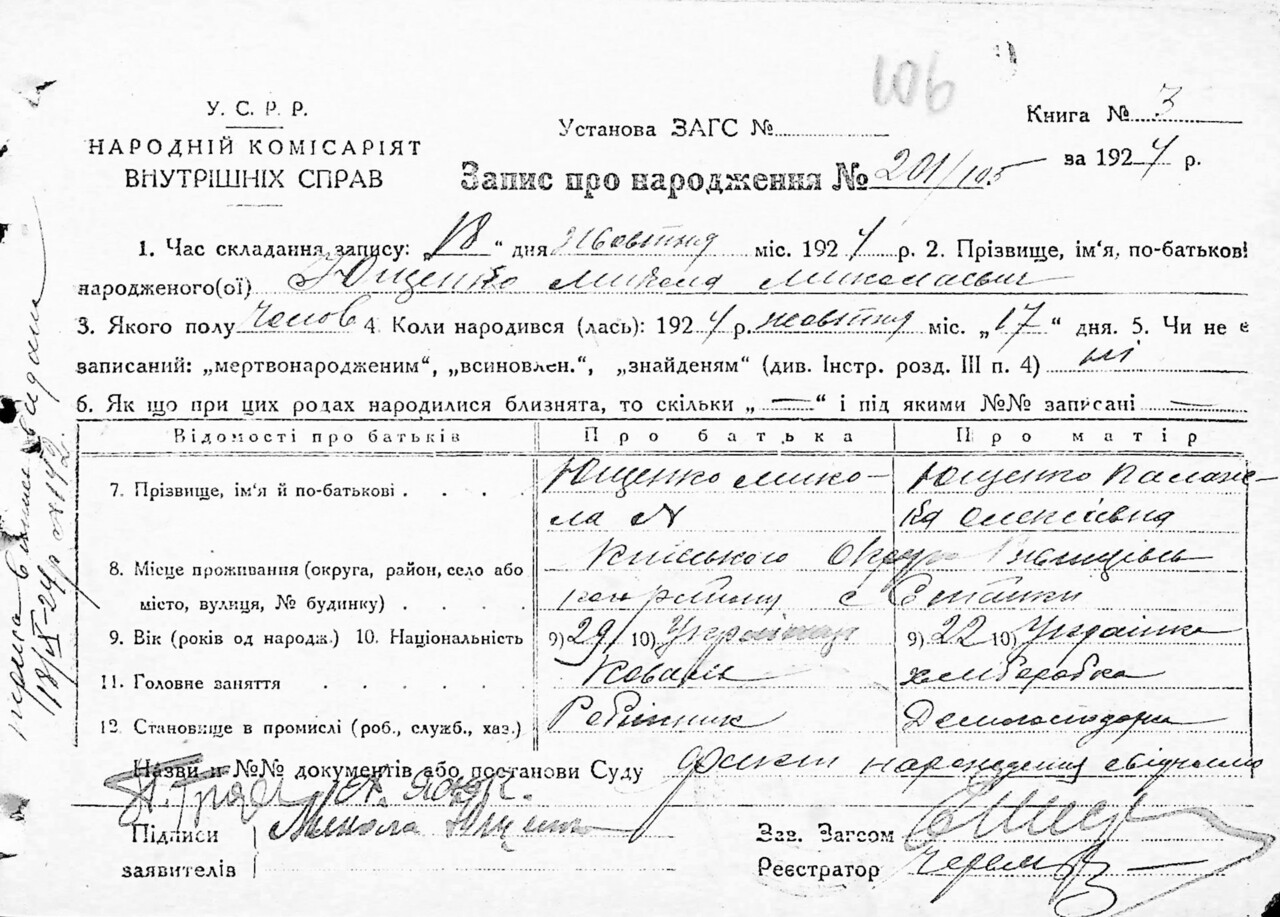 106
У. С. Р. Р.
НАРОДНІЙ КОМІСАРІЯТ
ВНУТРІШНІХ СПРАВ
Установа ЗАГС №
Книга № 3
за 1924 р.
Запис про народження № 201/105
1. Час складання запису: „18“ дня Жовтня міс. 1924 р. 2. Прізвище, ім‘я, по-батькові
народженого(ої) Ющенко Микола Миколаевич
3. Якого полу Чолов 4. Коли народився (лась): 1924 р. жовтня міс. „17“ дня. 5. Чи не є
записаний: „мертвонародженим“, „всиновлен.“, „знайденям“ (див. Інстр. розд. III п. 4) ні
6. Як що при цих родах народилися близнята, то скільки „—“ і під якими №№ записані —
Відомості про батьків Про батька Про матір
7. Прізвище, ім‘я й по-батькові Ющенко Мико- Ющенко Палаж-
ла ка Олексіівна
8. Місце проживання (округа, район, село або Киіського Округ
місто, вулиця, № будинку) району с
9. Вік (років од народж.) 10. Національність 9) 29 10) Украінець 9) 22 10) Украінка
11. Головне заняття Коваль хліборобка
12. Становище в промислі (роб., служб., хаз.) Робітник Домогосподарка
Назви и №№ документів або постанови Суду факт народження свідчимо
Підписи
заявителів
Микола Ющенко
Зав. Загсом
Реєстратор
18/X-24 р.